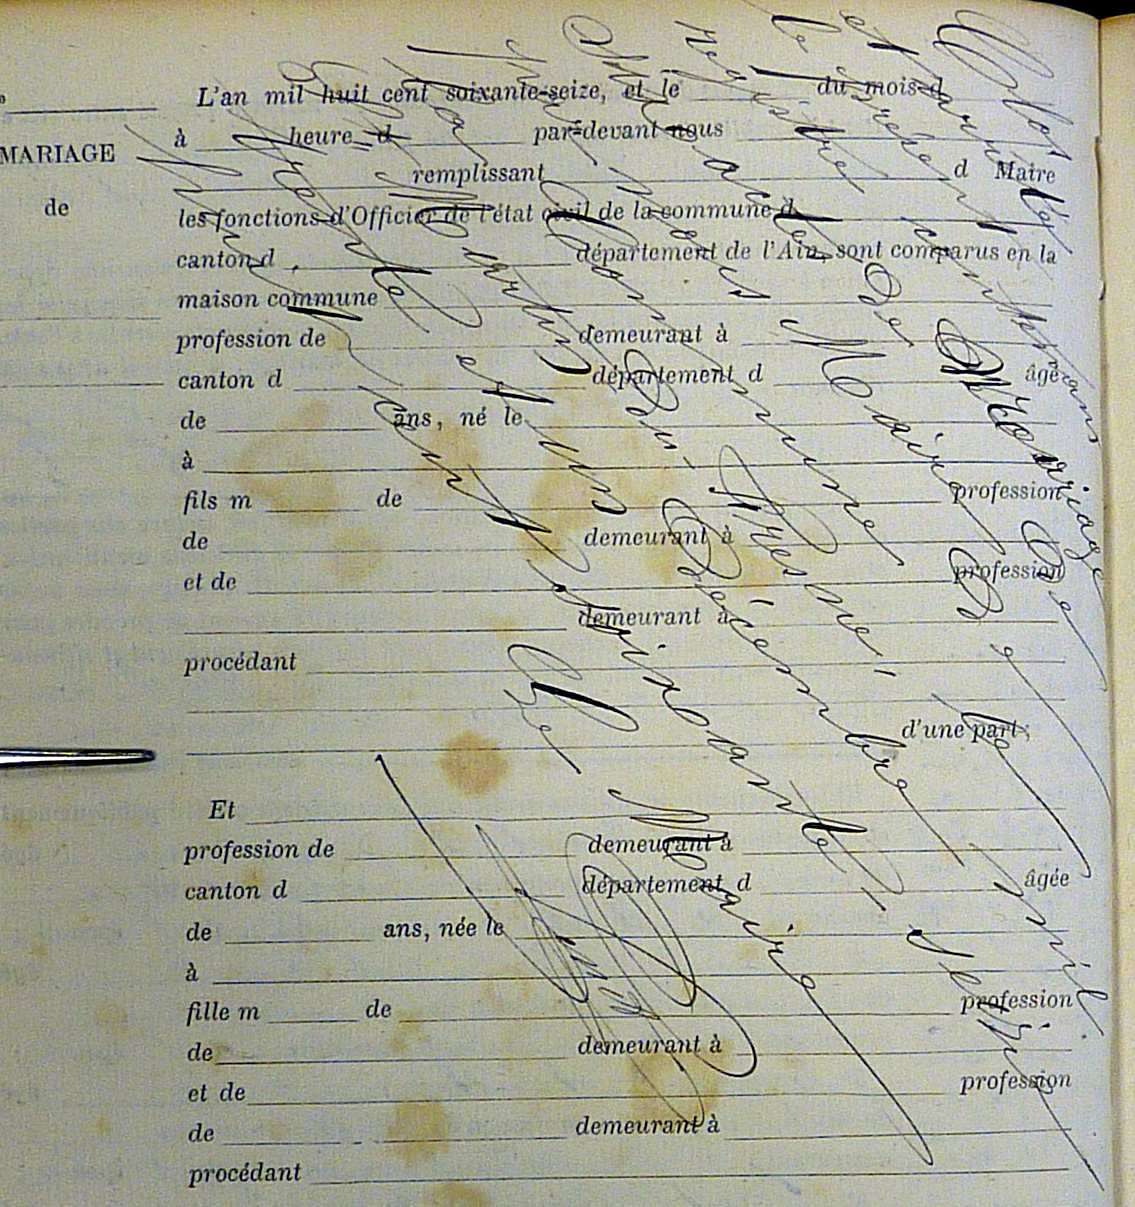 MARIAGE
de
L'an mil huit cent soixante-seize, et le du mois d
à heure d par-devant nous
remplissant d Maire
les fonctions d'Officier de l'état civil de la commune d
canton d département de l'Ain, sont comparus en la
maison commune
profession de demeurant à
canton d département d âgé
de ans, né le
à
fils m de profession
de demeurant à
et de profession
demeurant à
procédant
d'une part;
Et
profession de demeurant à
canton d département d âgée
de ans, née le
à
fille m de profession
de demeurant à
et de profession
de demeurant à
procédant
Clos
et arrêté
le présent contenant
registre De Mariage De
par nous Maire De
Commune
Martin Du Fresne, le
trente et un Décembre mil
huit cent soixante seize
Le Maire